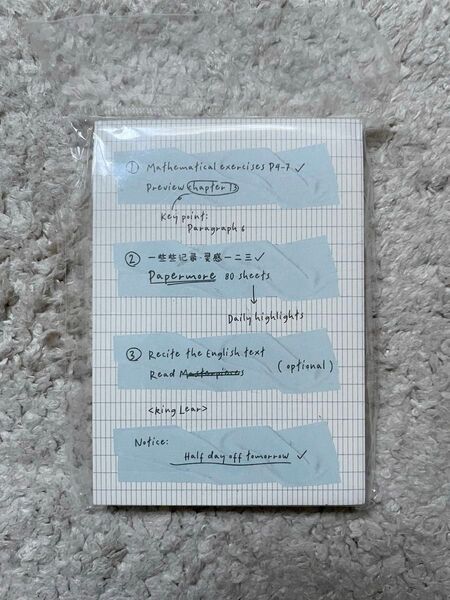 ① Mathematical exercises P4-7 ✓
Preview Chapter 13
Key point:
Paragraph 6
② 一些些记录·灵感一二三 ✓
Papermore 80 sheets
Daily highlights
③ Recite the English text
Read Masterpieces (optional)
<King Lear>
Notice:
Half day off tomorrow ✓